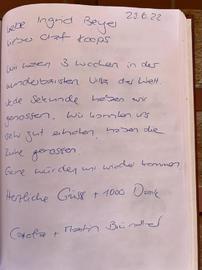 Liebe Ingrid Beyer 23.6.22
Urbo Olaf Koops
Wir waren 3 Wochen in der
wunderbarsten Villa der Welt.
Jede Sekunde haben wir
genossen. Wir konnten uns
sehr gut erholen, haben die
Ruhe genossen.
Gerne würden wir wieder kommen.
Herzliche Grüsse + 1000 Dank
+ Martin